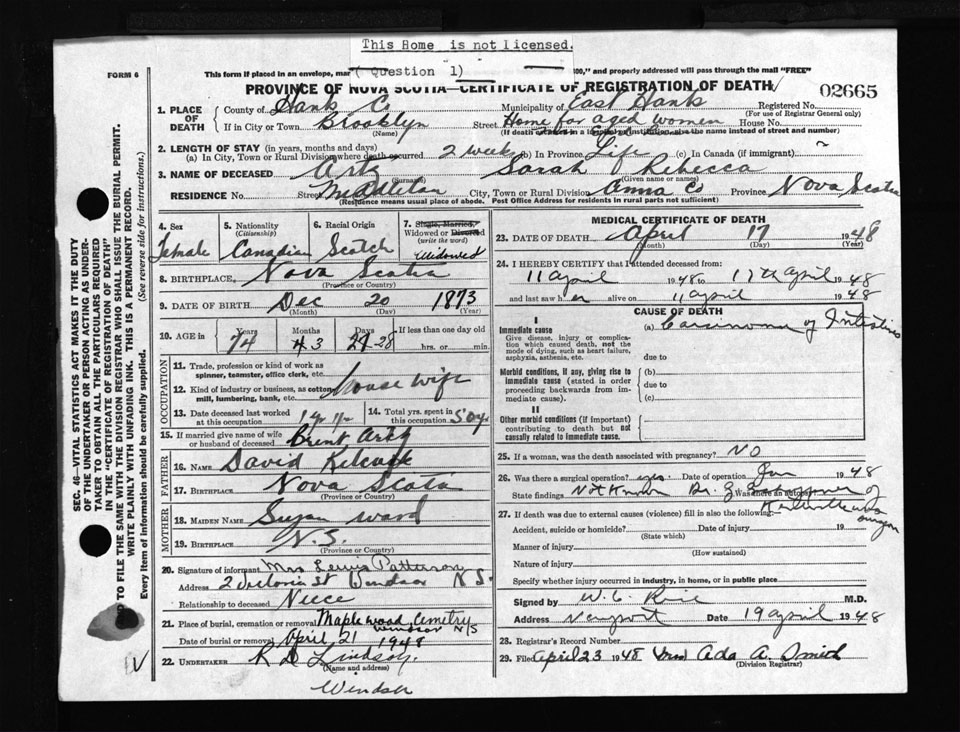 This Home is not licensed.
FORM 6
This form if placed in an envelope, mar (Question 1) 300," and properly addressed will pass through the mail "FREE"
PROVINCE OF NOVA SCOTIA—CERTIFICATE OF REGISTRATION OF DEATH
02665
1. PLACE OF DEATH County of Hants Co Municipality of East Hants Registered No.
(For use of Registrar General only)
If in City or Town Brooklyn Street Home for aged women House No.
(Name) (If death occurred in a hospital or institution, give the name instead of street and number)
2. LENGTH OF STAY (in years, months and days)
(a) In City, Town or Rural Division where death occurred 2 weeks (b) In Province Life (c) In Canada (if immigrant)
3. NAME OF DECEASED Artz Sarah Rebecca
(Surname) (Given name or names)
RESIDENCE No. Street Middleton City, Town or Rural Division Anna Co Province Nova Scotia
(Residence means usual place of abode. Post Office Address for residents in rural parts not sufficient)
4. Sex Female
5. Nationality (Citizenship) Canadian
6. Racial Origin Scotch
7. Single, Married, Widowed or Divorced (write the word) Widowed
8. BIRTHPLACE Nova Scotia
(Province or Country)
9. DATE OF BIRTH Dec 20 1873
(Month) (Day) (Year)
10. AGE in Years Months Days If less than one day old
74 4 3 27 28 hrs. or min.
OCCUPATION
11. Trade, profession or kind of work as spinner, teamster, office clerk, etc.
12. Kind of industry or business, as cotton mill, lumbering, bank, etc. House wife
13. Date deceased last worked at this occupation
14. Total yrs. spent in this occupation 50y
15. If married give name of wife or husband of deceased Brent Artz
FATHER
16. NAME David
17. BIRTHPLACE Nova Scotia
(Province or Country)
MOTHER
18. MAIDEN NAME Susan Ward
19. BIRTHPLACE N.S.
(Province or Country)
20. Signature of informant Mrs Lewis Patterson
Address 2 Victoria St Windsor N S.
Relationship to deceased Niece
21. Place of burial, cremation or removal Maplewood Cemetry
Windsor N/S
Date of burial or removal April 21 1948
22. UNDERTAKER R D Lindsay.
(Name and address)
Windsor
MEDICAL CERTIFICATE OF DEATH
23. DATE OF DEATH April 17 1948
(Month) (Day) (Year)
24. I HEREBY CERTIFY that I attended deceased from:
11 april 1948 to 17th April 1948
and last saw her alive on 11 april 1948
CAUSE OF DEATH
I
Immediate cause (a) Carsinoma of Intestins
Give disease, injury or complication which caused death, not the mode of dying, such as heart failure, asphyxia, asthenia, etc.
due to
Morbid conditions, if any, giving rise to immediate cause (stated in order proceeding backwards from immediate cause).
(b)
due to
(c)
II
Other morbid conditions (if important) contributing to death but not causally related to immediate cause.
25. If a woman, was the death associated with pregnancy? NO
26. Was there a surgical operation? yes. Date of operation Jan 1948
State findings Not Known Dr. Was there an autopsy of
27. If death was due to external causes (violence) fill in also the following: surgeon
Accident, suicide or homicide? Date of injury 19
(State which)
Manner of injury
(How sustained)
Nature of injury
Specify whether injury occurred in industry, in home, or in public place
Signed by M.D.
Address Newport Date 19 april 1948
28. Registrar's Record Number
29. Filed April 23 1948 Mrs Ada A. Smith
(Division Registrar)
SEC. 46—VITAL STATISTICS ACT MAKES IT THE DUTY
OF THE UNDERTAKER OR PERSON ACTING AS UNDER-
TAKER TO OBTAIN ALL THE PARTICULARS REQUIRED
IN THE "CERTIFICATE OF REGISTRATION OF DEATH"
TO FILE THE SAME WITH THE DIVISION REGISTRAR WHO SHALL ISSUE THE BURIAL PERMIT.
WRITE PLAINLY WITH UNFADING INK. THIS IS A PERMANENT RECORD.
Every item of information should be carefully supplied. (See reverse side for instructions.)